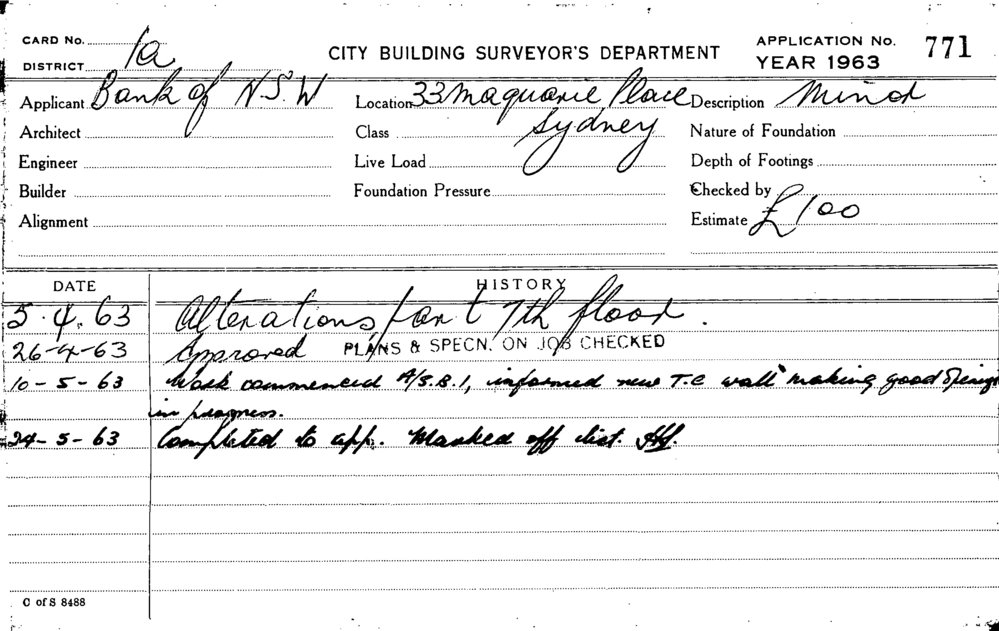 CARD No. 1a
DISTRICT
CITY BUILDING SURVEYOR'S DEPARTMENT
APPLICATION No. 771
YEAR 1963
Applicant Bank of N.S.W Location 33 Maquarie Place Description Mind
Sydney
Architect Class Nature of Foundation
Engineer Live Load Depth of Footings
Builder Foundation Pressure Checked by
Alignment Estimate £100
DATE HISTORY
5.4.63 Alterations part 7th floor.
26-4-63 Approved PLANS & SPECN. ON JOB CHECKED
10-5-63 Work commenced A/S.B.1, informed new T.C wall making good
in progress.
24-5-63 Completed to app. Marked off list.
C of S 8488